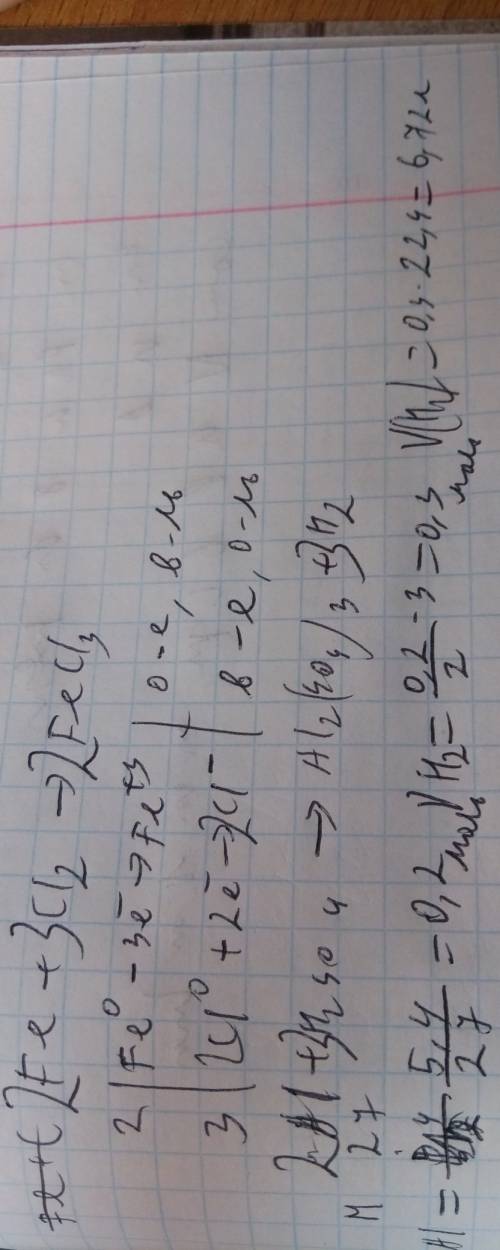 2Fe + 3Cl₂ → 2FeCl₃
2 | Fe⁰ – 3ē → Fe⁺³ | о-е, в-ль
3 | 2Cl⁰ + 2ē → 2Cl⁻ | в-е, о-ль
2Al + 3H₂SO₄ → Al₂(SO₄)₃ + 3H₂
M 27
Al = 5,4/27 = 0,2 моль H₂ = 0,2/2 · 3 = 0,3 моль V(H₂) = 0,3 · 22,4 = 6,72л